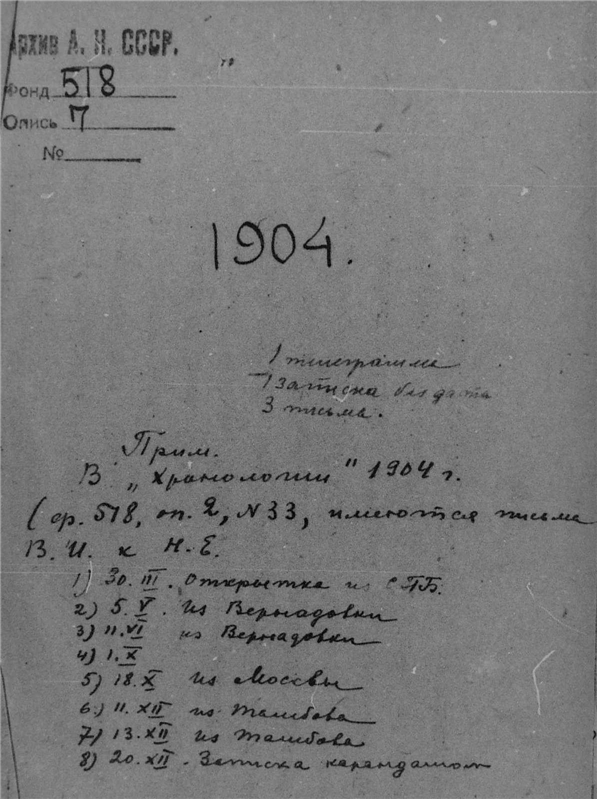 Архив А. Н. СССР.
Фонд 518
Опись 7
№
1904.
1 телеграмма
1 записка без даты
3 письма.
Прим.
В „Хронологии" 1904 г.
(ф. 518, оп. 2, N 33, имеются письма
В. И. к Н. Е.
1) 30. III. Открытка из СПБ.
2) 5. V. из Вернадовки
3) 11. VI из Вернадовки
4) 1. X
5) 18. X из Москвы
6) 11. XII из Тамбова
7) 13. XII из Тамбова
8) 20. XII. Записка карандашом